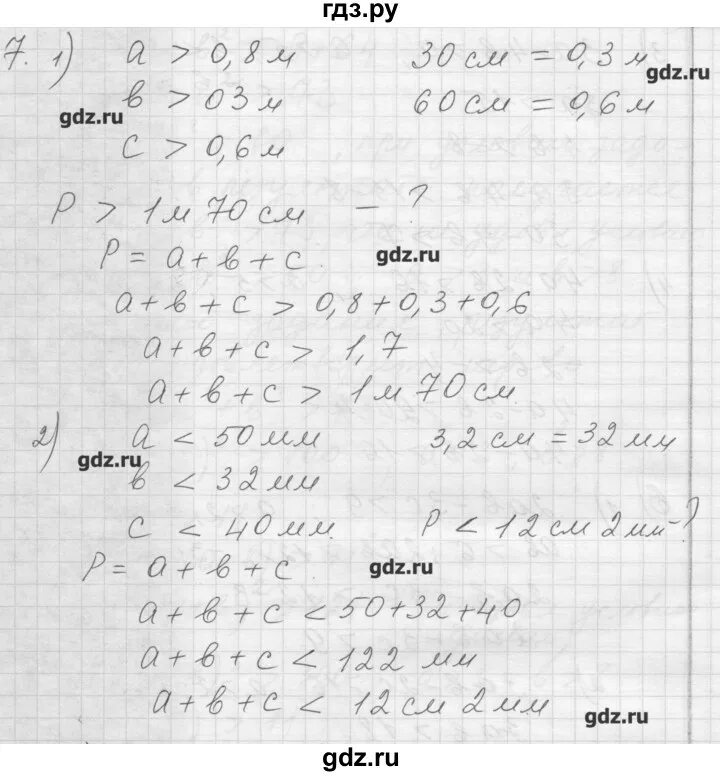 гдз.ру
7. 1) a > 0,8 м 30 см = 0,3 м
gdz.ru
b > 03 м 60 см = 0,6 м
gdz.ru
c > 0,6 м
P > 1 м 70 см - ?
P = a + b + c.
gdz.ru
a + b + c > 0,8 + 0,3 + 0,6
a + b + c > 1,7
a + b + c > 1 м 70 см
2) a < 50 мм 3,2 см = 32 мм
gdz.ru
b < 32 мм
c < 40 мм. P < 12 см 2 мм - ?
P = a + b + c.
gdz.ru
a + b + c < 50 + 32 + 40
a + b + c < 122 мм
a + b + c < 12 см 2 мм
gdz.ru
gdz.ru